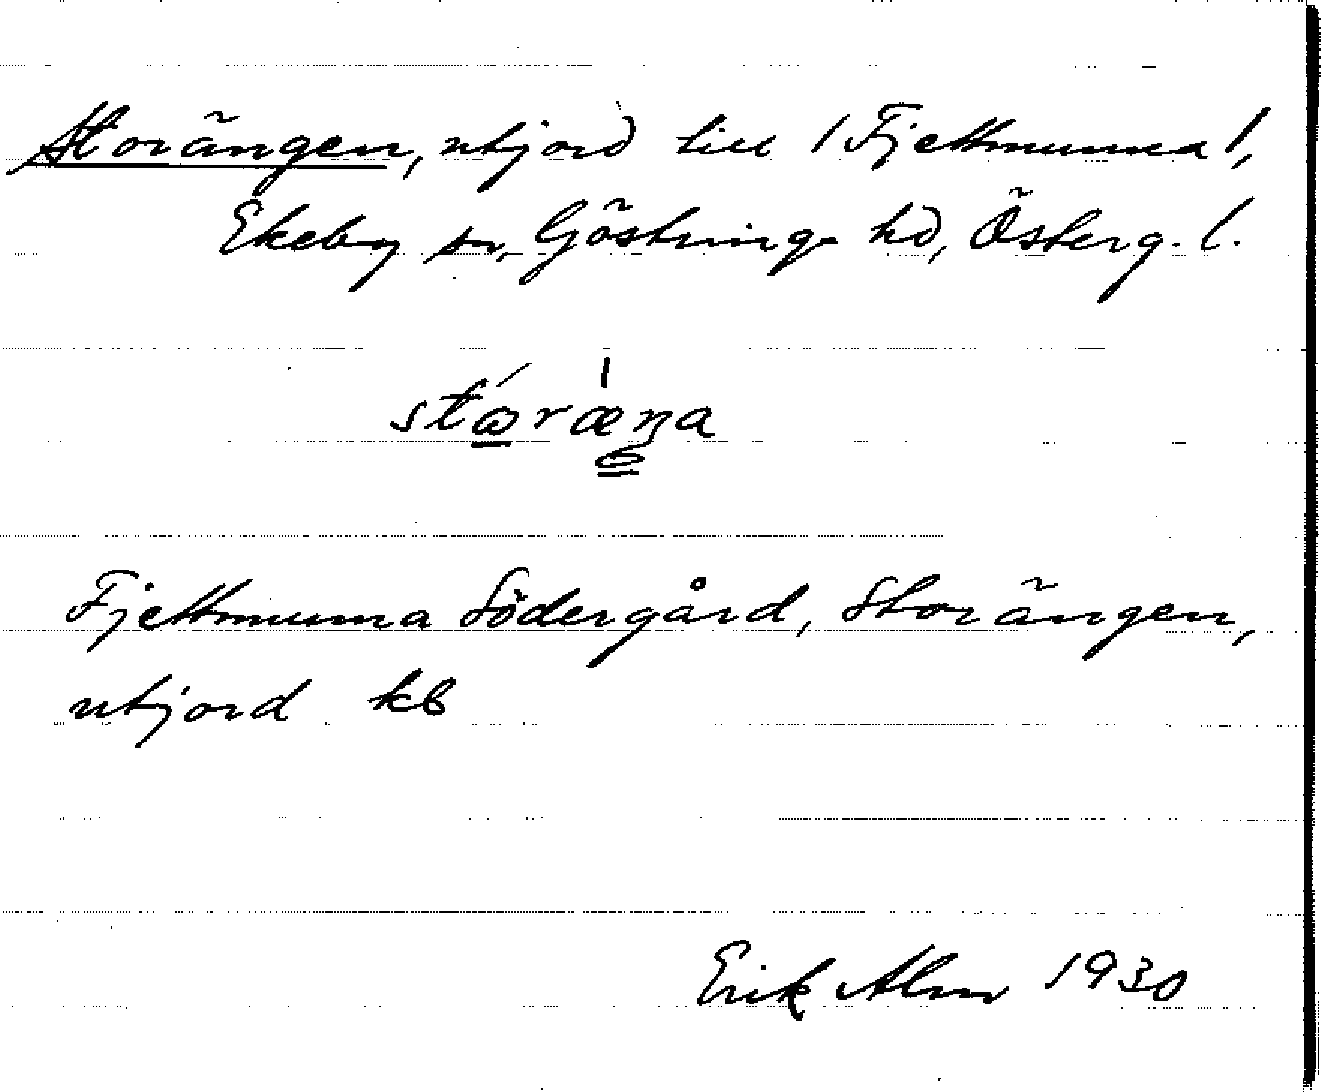 Storängen, utjord till / Fjettmunna /,
Ekeby sn, Göstrings hd, Österg. l.
Fjettmunna Södergård, Storängen,
utjord kb
Erik Alm 1930